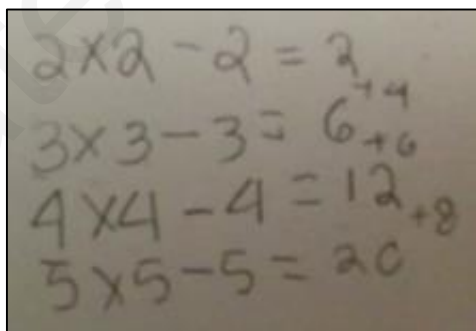 2×2-2=2
+4
3×3-3=6
+6
4×4-4=12
+8
5×5-5=20